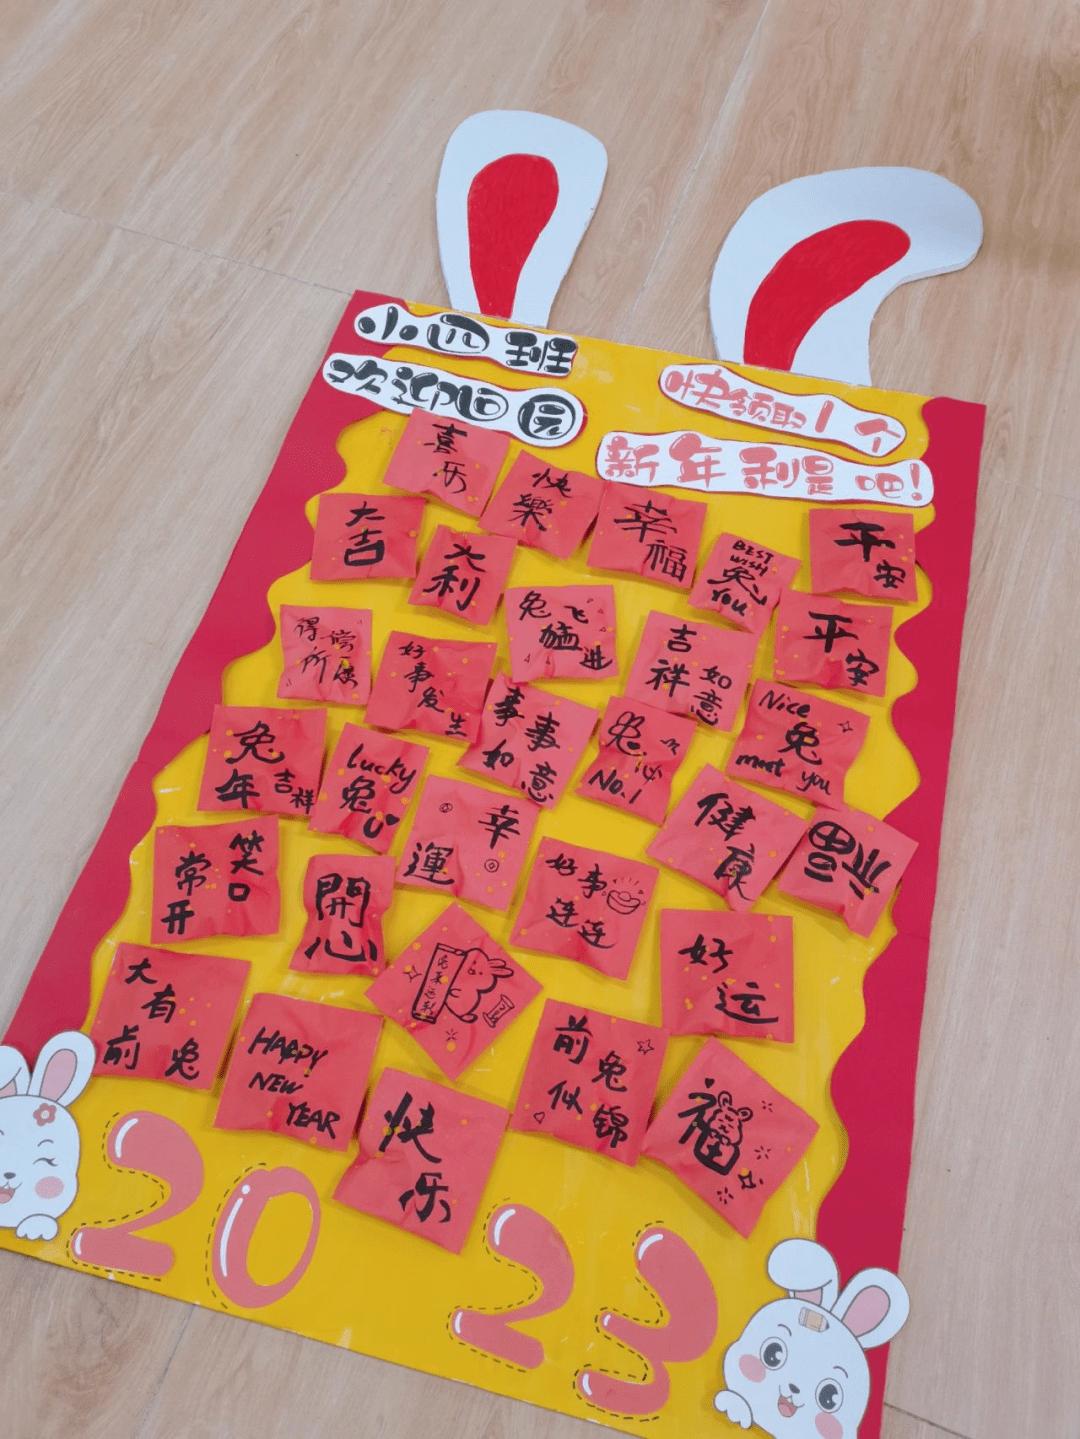 小四班
欢迎回园
快领取1个
新年利是吧!
喜乐
快樂
幸福
BEST
WISH
兔
YOU
平安
大吉
大利
兔飞猛进
吉祥如意
平安
得偿所愿
好事发生
事事如意
兔心
No.1
Nice
兔
meet you
兔年吉祥
lucky
兔
U
幸運
健康
福
笑口常开
開心
好事连连
好运
大有前兔
HAPPY
NEW
YEAR
兔来运转
前兔似锦
福
快乐
2023